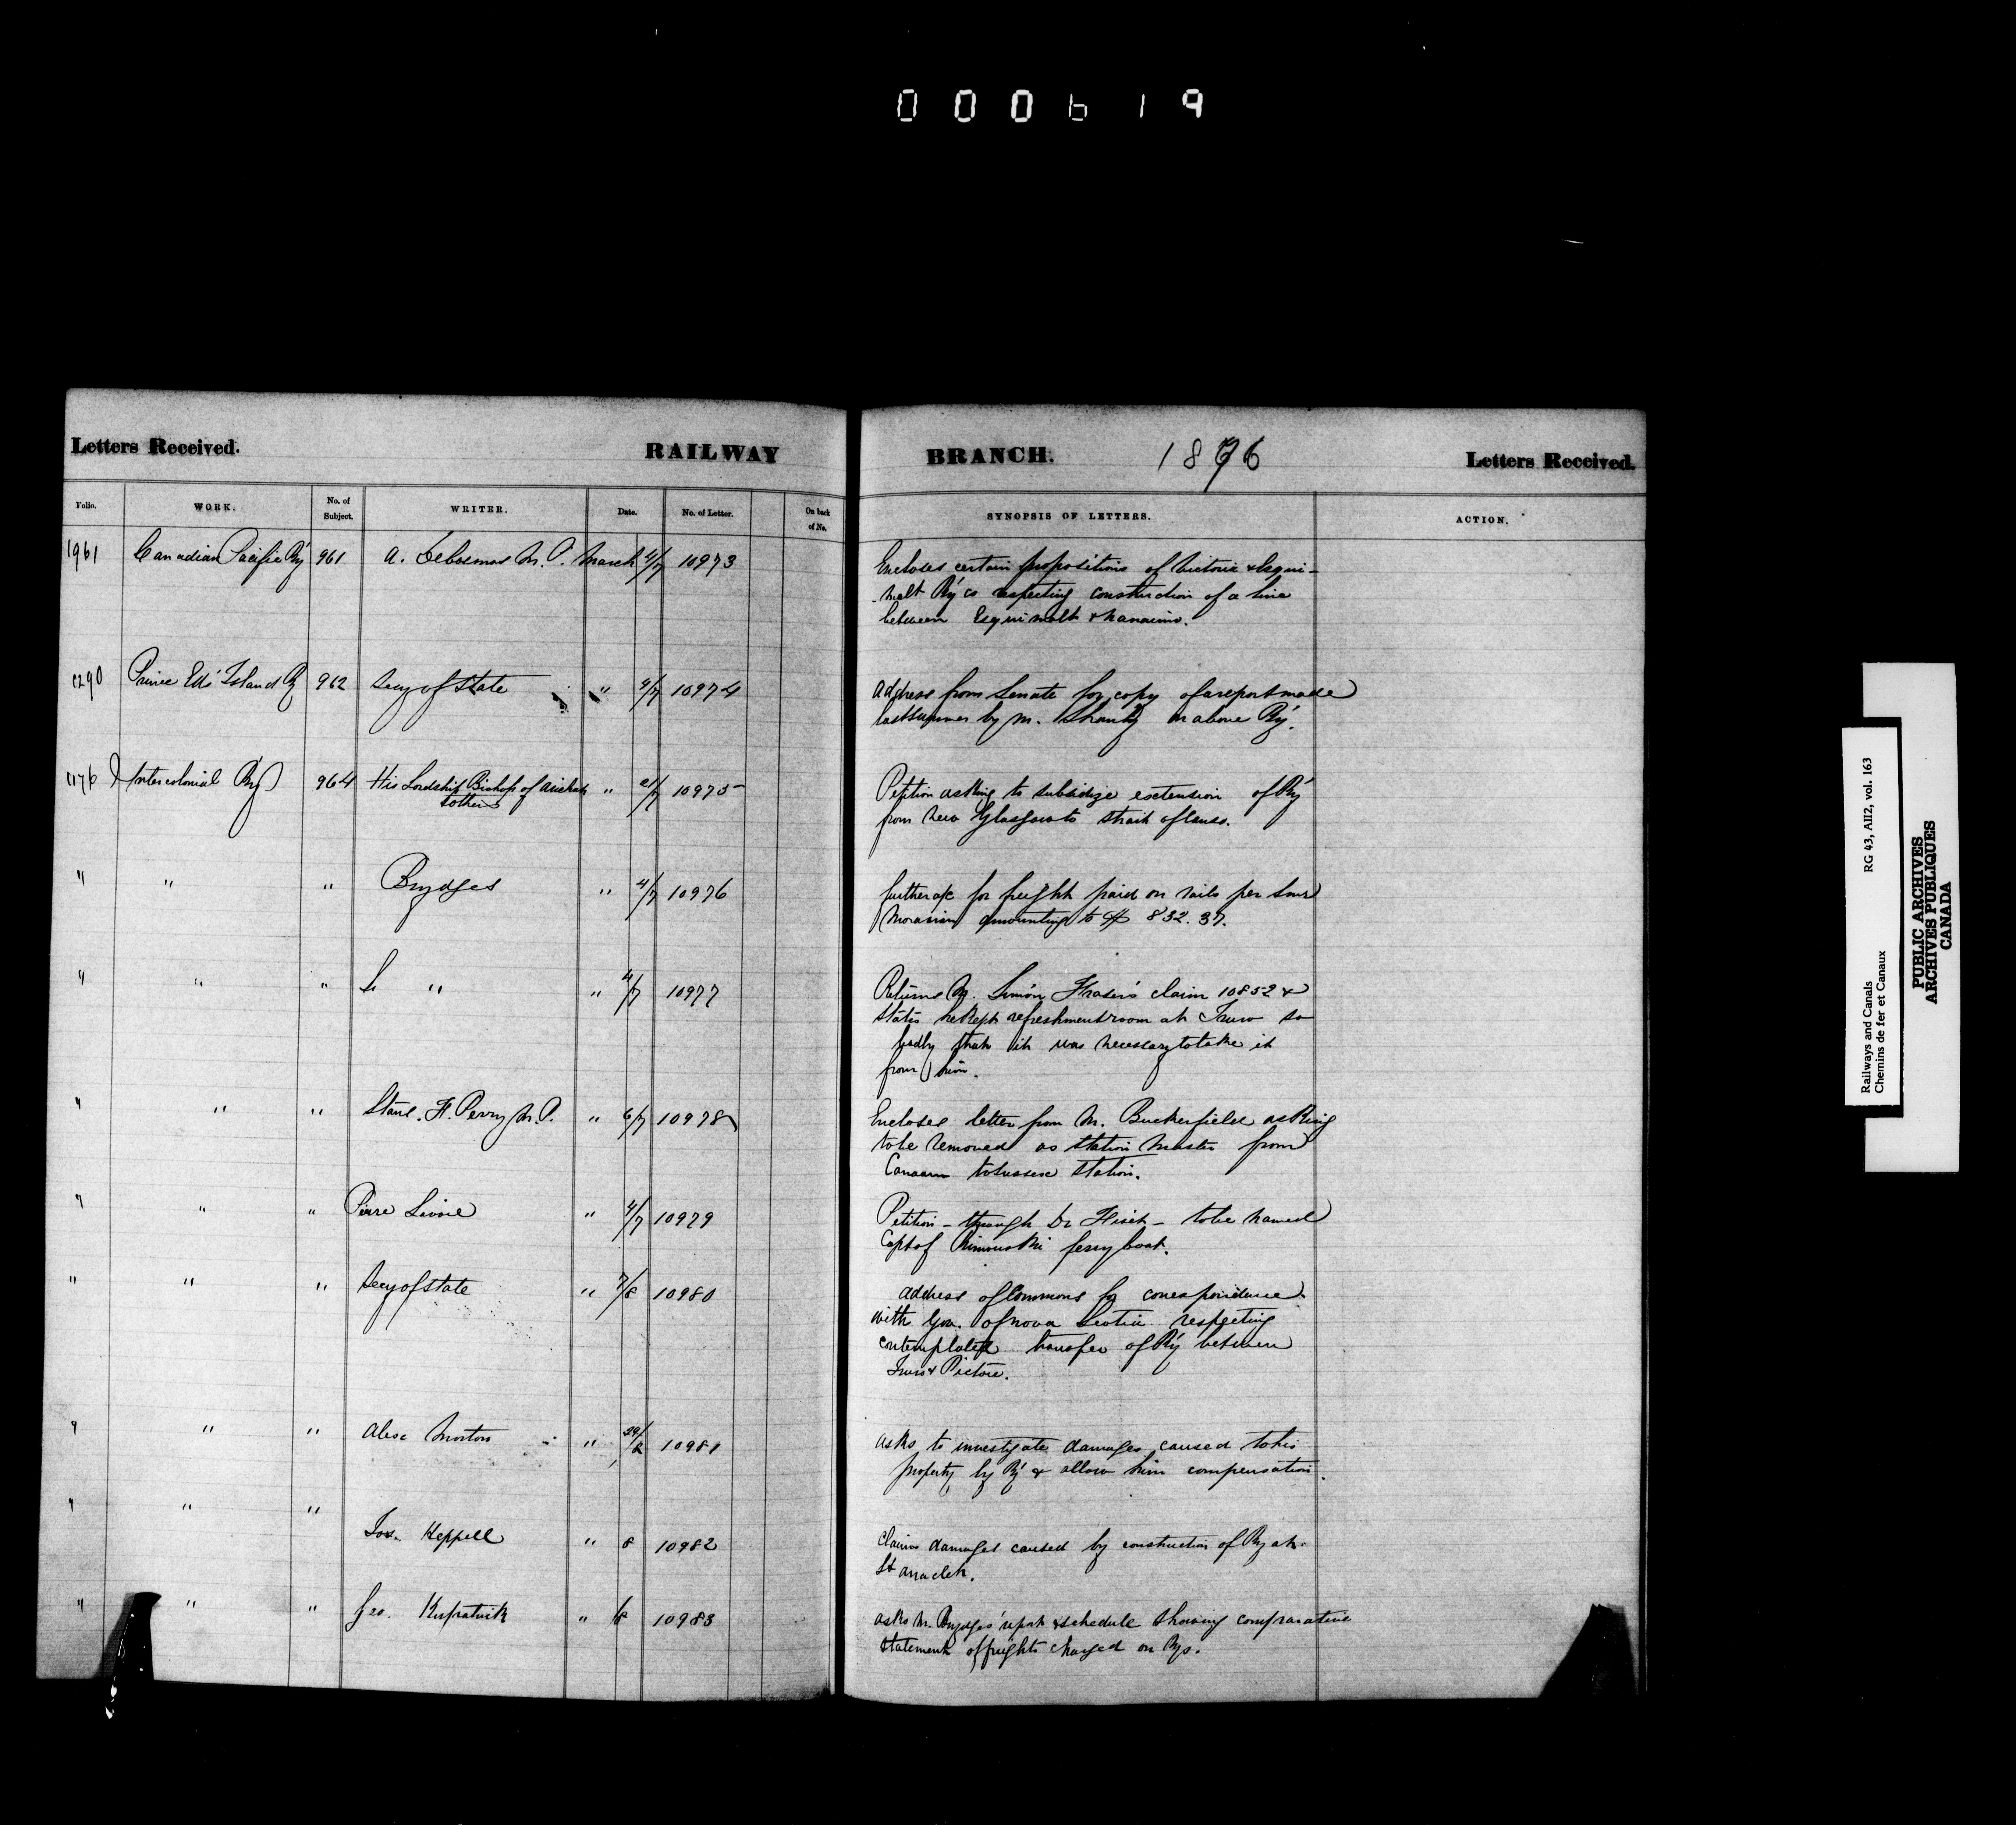 000619
Letters Received. RAILWAY BRANCH. 1876 Letters Received.
Folio. WORK. No. of Subject. WRITER. Date. No. of Letter. On back of No. SYNOPSIS OF LETTERS. ACTION.
1961 Canadian Pacific Ry 961 A. DeCosmos M.P. March 4/7 10973 Encloses certain propositions of Victoria & Esqui-
-malt Ry Co respecting construction of a line
between Esquimalt & Nanaimo.
1290 Prince Ed's Island Ry 962 Secy of State " 4/7 10974 Address from Senate for copy of a report made
last summer by M. Shanly on above Ry.
1176 Intercolonial Ry 964 His Lordship Bishop of Arichat " 21/7 10975 Petition asking to subsidize extension of Ry
& others
from New Glasgow to Strait of Canso.
" " " Brydges " 4/7 10976 further a/c for freight paid on rails per Smr
Moravian amounting to $ 832.37.
" " " " " 4/7 10977 Returns Mr. Simon Fraser's claim 10852 &
states he kept refreshment room at Truro so
badly that it was necessary to take it
from him.
" " " Stans. F. Perry M.P. " 6/7 10978 Encloses letter from Mr. Buckerfield asking
to be removed as Station Master from
to Sussex Station.
" " " Pierre Lavoie " 4/7 10979 Petition - through Dr Fiset - to be named
Capt of Rimouski ferry boat.
" " " Secy of State " 7/8 10980 Address of Commons for correspondence
with Gov. of Nova Scotia respecting
contemplated transfer of Ry between
Truro & Pictou.
" " " Alex Morton " 29/8 10981 Asks to investigate damages caused to his
property by Ry & allow him compensation.
" " " Jos. Keppell " 8 10982 Claims damages caused by construction of Ry at
St Anaclet.
" " " Geo. Kirkpatrick " 8 10983 Asks Mr. Brydges' report & schedule showing comparative
statement of freights charged on Rys.
Railways and Canals RG 43, AII2, vol. 163
Chemins de fer et Canaux
PUBLIC ARCHIVES
ARCHIVES PUBLIQUES
CANADA